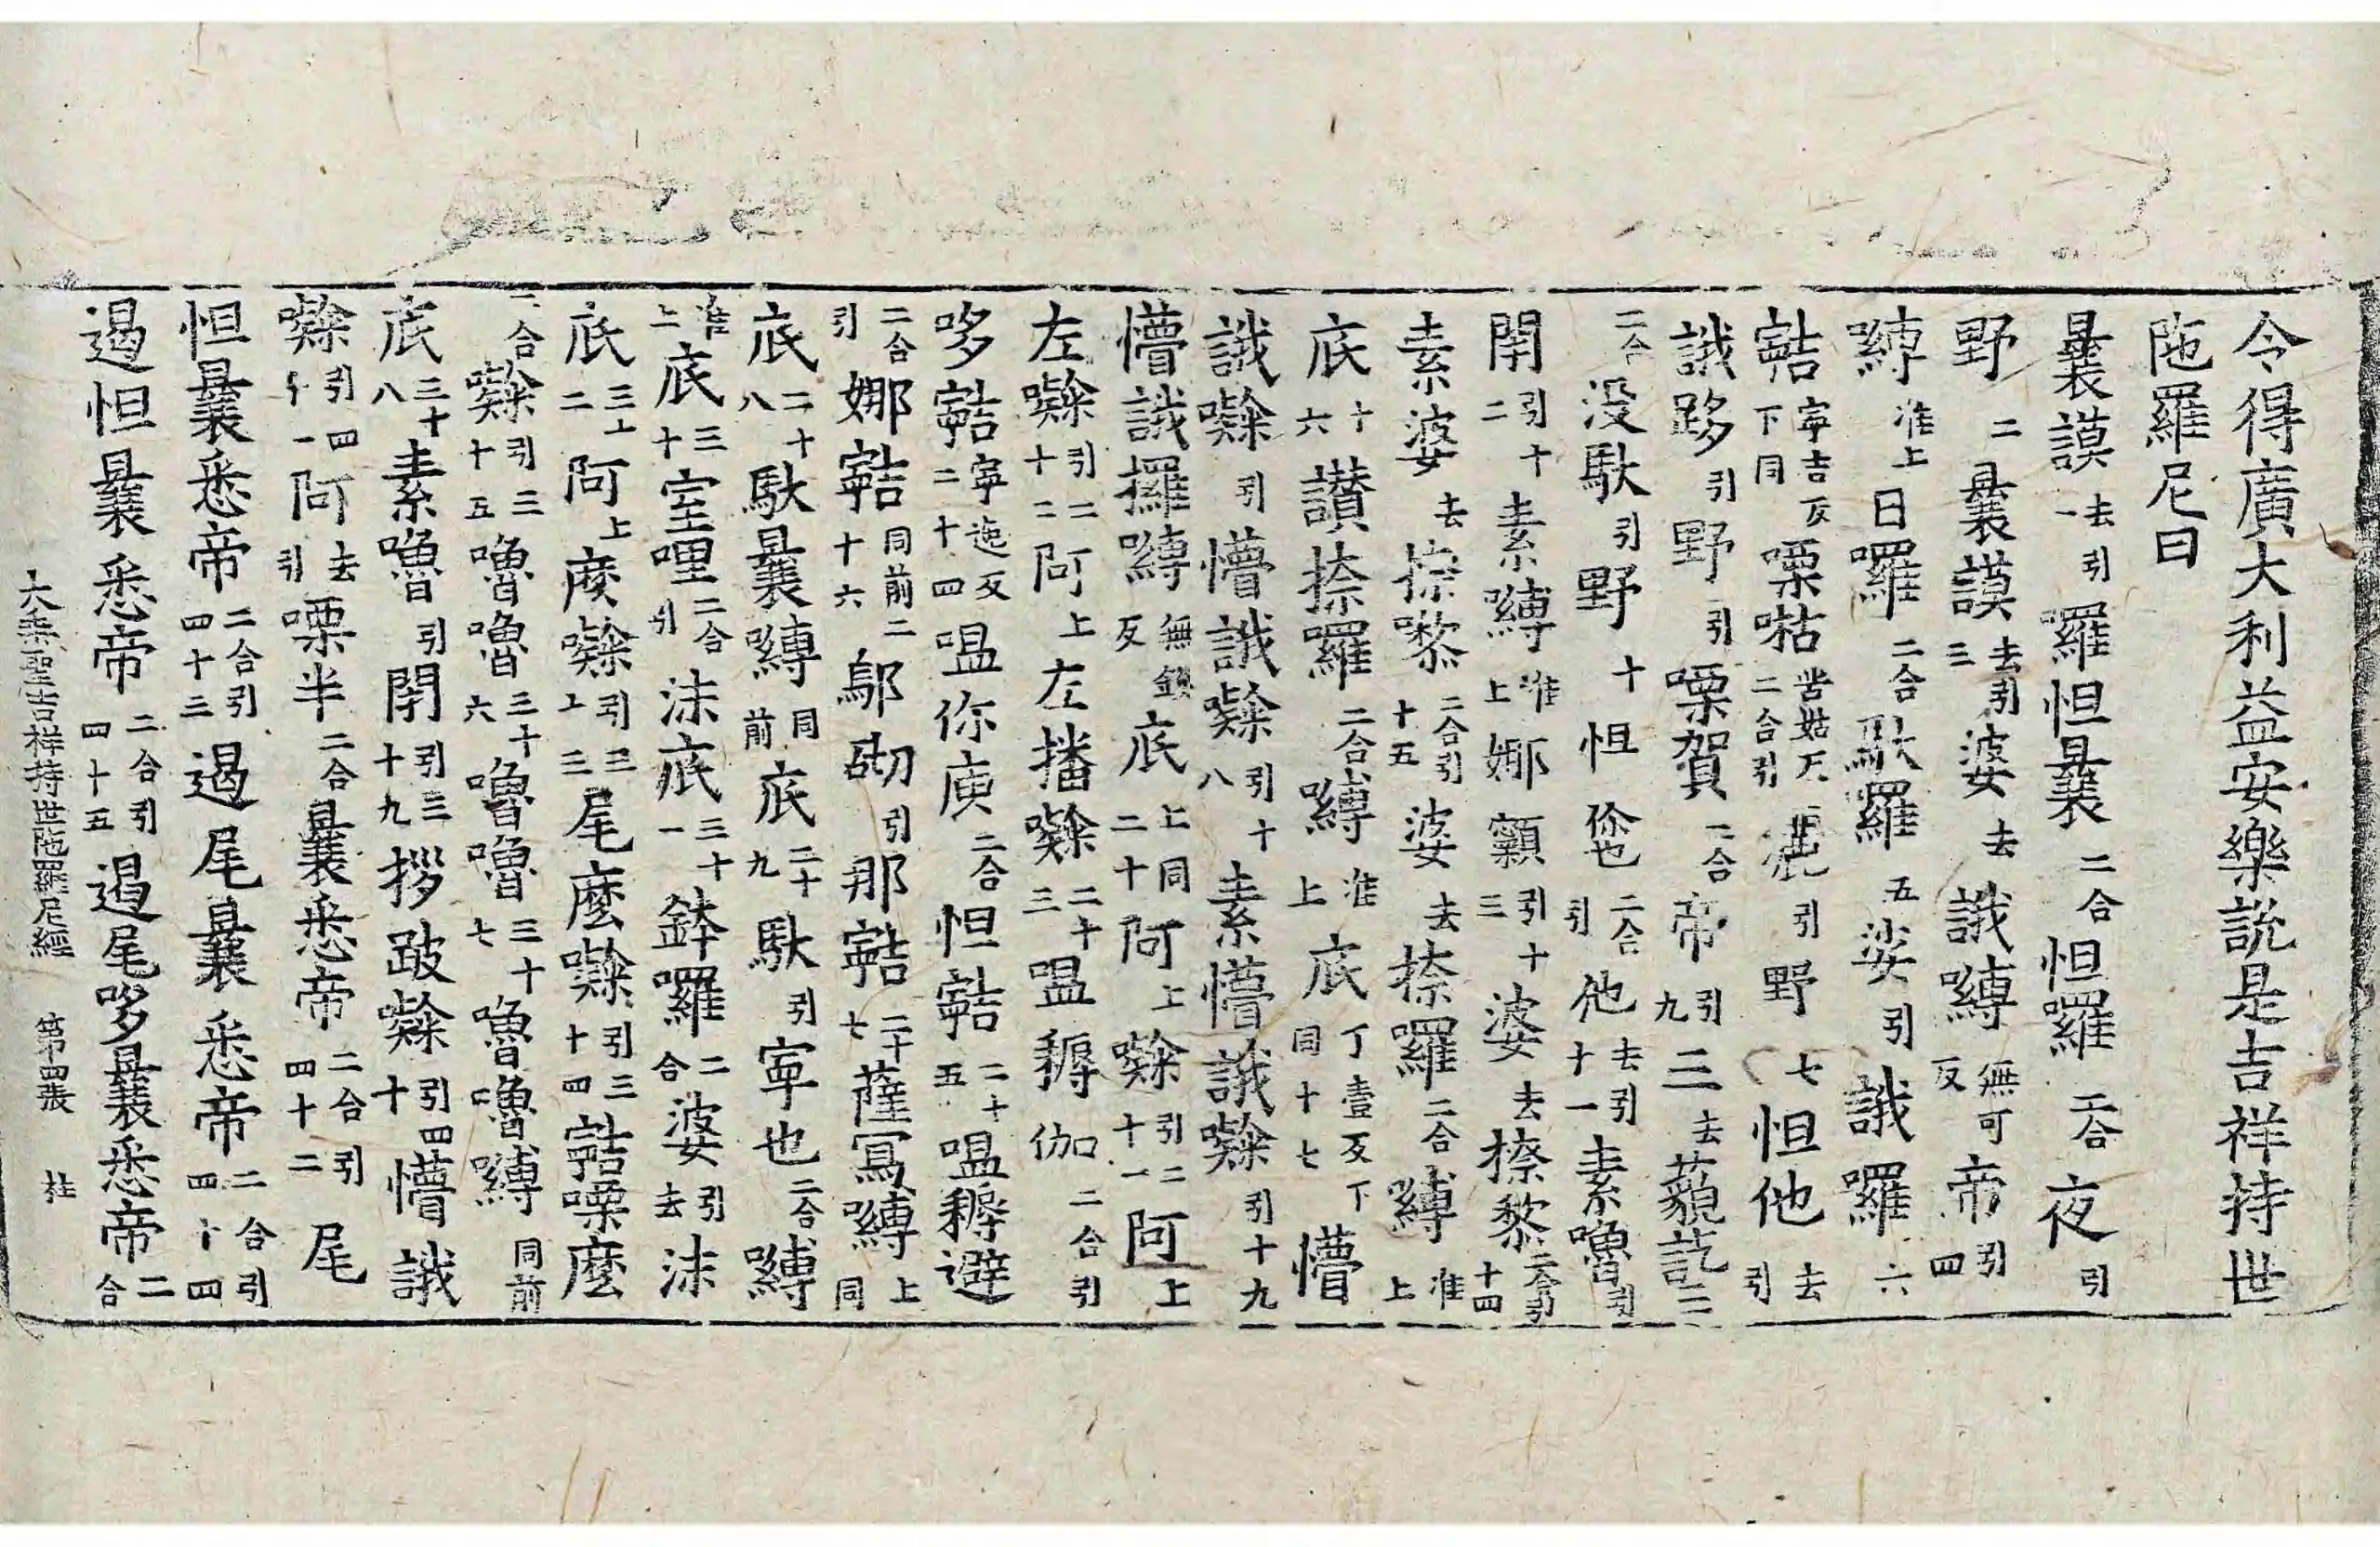 令得廣大利益安樂說是吉祥持世
陁羅尼曰
曩謨去引一羅怛曩二合怛羅二合夜引
野二曩謨去引三婆去誐嚩無可反帝引四
嚩准上日羅二合馱羅五娑引誐囉六
寧吉反下同㗚枯苦姑反二合引引野七怛他去引
誐哆引野引㗚賀二合帝引九三去藐訖二
二合没馱引野十怛二合引他去引十一素嚕引
閇引十二素嚩准上娜引十三婆去捺黎二合引十四
素婆去捺黎二合引十五婆去捺羅二合嚩准上
底十六讃捺羅二合嚩准上底丁壹反下同十七懵
誐㘑引懵誐㘑引十八素懵誐㘑引十九
懵誐攞嚩無鎖反底上同二十阿上㘑引二十一阿上
左㘑引二十二阿上左播㘑二十三嗢耨伽二合引
哆寧逸反二十四嗢你庾二合怛二十五嗢耨避
二合引娜同前二十六鄔砌引那二十七薩寫嚩上同
底二十八馱曩嚩同前底二十九馱引寧也二合嚩
准上底三十室哩二合引沬底三十一鉢羅二合婆引去沬
底三十二阿上㢝㘑引三十三尾麼㘑引三十四㗚麼
二合㘑引三十五嚕嚕三十六嚕嚕三十七嚕嚕嚩同前
底三十八素嚕引閇引三十九拶跛㘑引四十懵誐
㘑引四十一阿去引㗚半二合曩悉帝二合引四十二尾
怛曩悉帝二合引四十三遏尾曩悉帝二合引四十四
遏怛曩悉帝二合引四十五遏尾哆曩悉帝二合
大乘聖吉祥持世陁羅尼經 第四張 桂